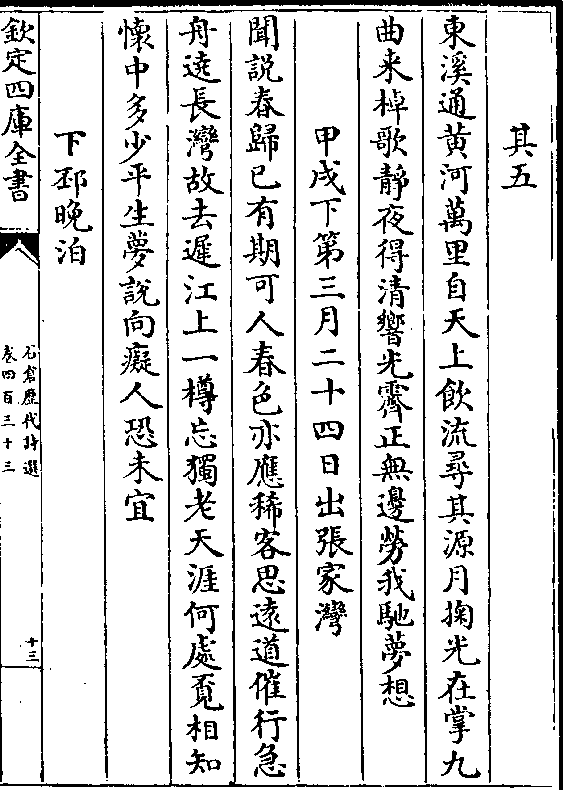 其五
東溪通黄河萬里自天上飲流尋其源月掬光在掌九
曲来棹歌靜夜得清響光霽正無邊勞我馳夢想
甲戌下第三月二十四日出張家灣
聞説春歸已有期可人春色亦應稀客思遠道催行急
舟遶長灣故去遲江上一樽忘獨老天涯何處覔相知
懷中多少平生夢說向癡人恐未宜
下邳晚泊
欽定四庫全書
石倉歷代詩選
卷四百三十三
十三